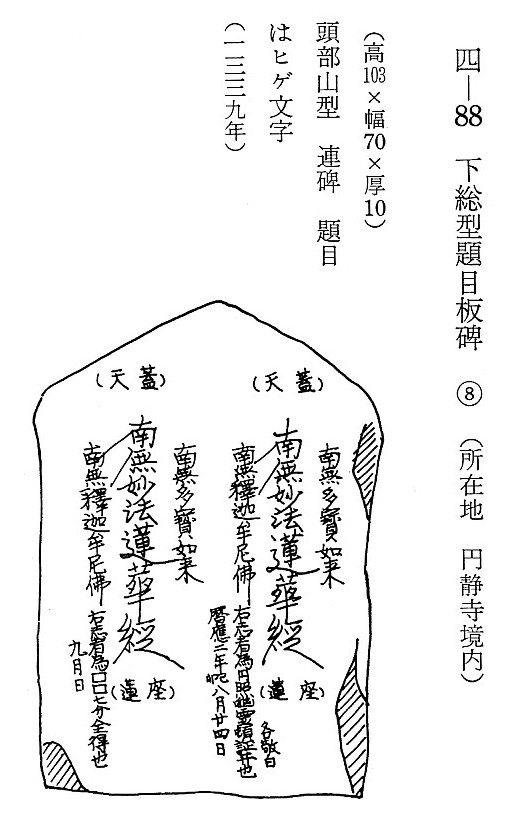 四―88 下総型題目板碑 ⑧ (所在地 円静寺境内)
(高103×幅70×厚10)
頭部山型 連碑 題目
はヒゲ文字
(一三三九年)
(天蓋)
南無多寳如来
南無妙法蓮華經
南無釋迦牟尼佛
(蓮座)
各敬白
右志者為円照
暦應二年 八月廿四日
(天蓋)
南無多寳如来
南無妙法蓮華經
南無釋迦牟尼佛
(蓮座)
右志者為口口七分全得也
九月日